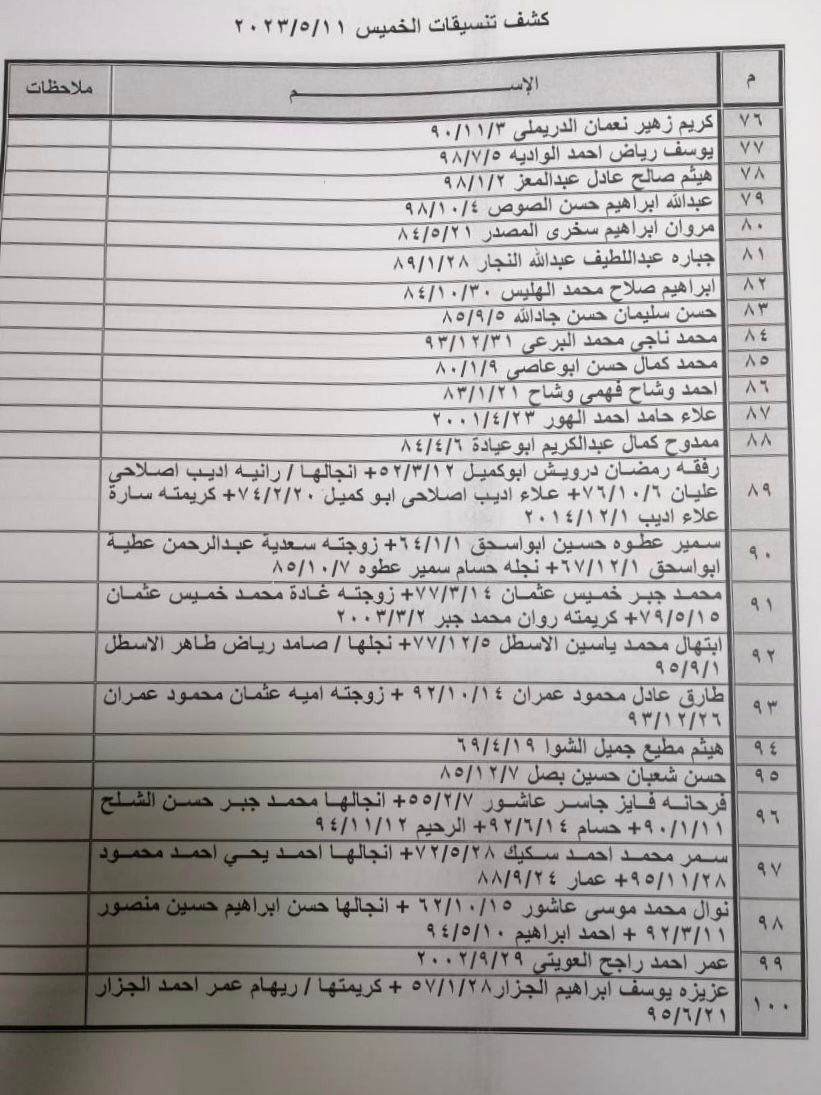 كشف تنسيقات الخميس ٢٠٢٣/٥/١١
م الإسم ملاحظات
٧٦ كريم زهير نعمان الدريملى ٩٠/١١/٣
٧٧ يوسف رياض احمد الواديه ٩٨/٧/٥
٧٨ هيثم صالح عادل عبدالمعز ٩٨/١/٢
٧٩ عبدالله ابراهيم حسن الصوص ٩٨/١٠/٤
٨٠ مروان ابراهيم سخرى المصدر ٨٤/٥/٢١
٨١ جباره عبداللطيف عبدالله النجار ٨٩/١/٢٨
٨٢ ابراهيم صلاح محمد الهليس ٨٤/١٠/٣٠
٨٣ حسن سليمان حسن جادالله ٨٥/٩/٥
٨٤ محمد ناجى محمد البرعى ٩٣/١٢/٣١
٨٥ محمد كمال حسن ابوعاصى ٨٠/١/٩
٨٦ احمد وشاح فهمى وشاح ٨٣/١/٢١
٨٧ علاء حامد احمد الهور ٢٠٠١/٤/٢٣
٨٨ ممدوح كمال عبدالكريم ابوعيادة ٨٤/٤/٦
٨٩ رفقه رمضان درويش ابوكميل ٥٢/٣/١٢+ انجالها / رانيه اديب اصلاحي
عليان ٧٦/١٠/٦+ علاء اديب اصلاحى ابو كميل ٧٤/٢/٢٠+ كريمته سارة
علاء اديب ٢٠١٤/١٢/١
٩٠ سمير عطوه حسين ابواسحق ٦٤/١/١+ زوجته سعدية عبدالرحمن عطية
ابواسحق ٦٧/١٢/١+ نجله حسام سمير عطوه ٨٥/١٠/٧
٩١ محمد جبر خميس عثمان ٧٧/٣/١٤+ زوجته غادة محمد خميس عثمان
٧٩/٥/١٥+ كريمته روان محمد جبر ٢٠٠٣/٣/٢
٩٢ ابتهال محمد ياسين الاسطل ٧٧/١٢/٥+ نجلها / صامد رياض طاهر الاسطل
٩٥/٩/١
٩٣ طارق عادل محمود عمران ٩٢/١٠/١٤ + زوجته اميه عثمان محمود عمران
٩٣/١٢/٢٦
٩٤ هيثم مطيع جميل الشوا ٦٩/٤/١٩
٩٥ حسن شعبان حسين بصل ٨٥/١٢/٧
٩٦ فرحانه فايز جاسر عاشور ٥٥/٢/٧+ انجالها محمد جبر حسن الشلح
٩٠/١/١١+ حسام ٩٢/٦/١٤+ الرحيم ٩٤/١١/١٢
٩٧ سمر محمد احمد سكيك ٧٢/٥/٢٨+ انجالها احمد يحي احمد محمود
٩٥/١١/٢٨+ عمار ٨٨/٩/٢٤
٩٨ نوال محمد موسى عاشور ٦٢/١٠/١٥ + انجالها حسن ابراهيم حسين منصور
٩٢/٣/١١ + احمد ابراهيم ٩٤/٥/١٠
٩٩ عمر احمد راجح العويتى ٢٠٠٢/٩/٢٩
١٠٠ عزيزه يوسف ابراهيم الجزار٥٧/١/٢٨ + كريمتها / ريهام عمر احمد الجزار
٩٥/٦/٢١